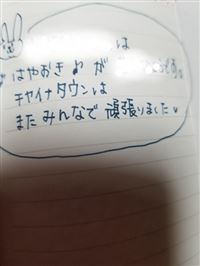 は
はやおき♪が
チャイナタウンは
またみんなで頑張りました